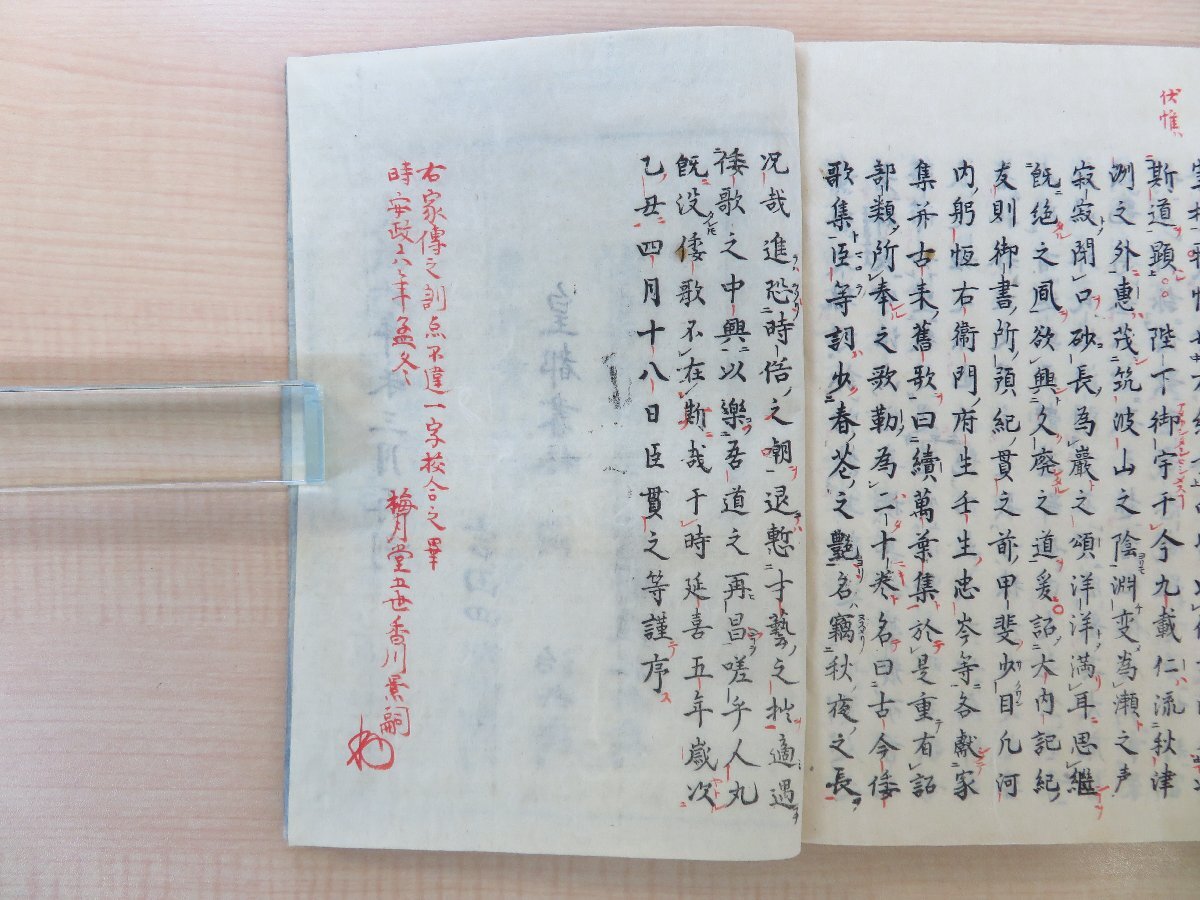 伏惟
斯道顕陛下御宇于今九載仁流秋津
洲之外惠茂筑波山之陰淵変為瀬之声
寂寂閇口砂長為巖之頌洋洋満耳思継
既絶之風欲興久廃之道爰詔大内記紀
友則御書所預紀貫之前甲斐少目凡河
内躬恒右衛門府生壬生忠岑等各献家
集并古来舊歌曰續萬葉集於是重有詔
部類所奉之歌勒為二十巻名曰古今倭
歌集臣等詞少春花之艶名竊秋夜之長
况哉進恐時俗之嘲退慙才藝之拙適遇
倭歌之中興以樂吾道之再昌嗟乎人丸
既没倭歌不在斯哉于時延喜五年歲次
乙丑四月十八日臣貫之等謹序
右家傳之訓点不違一字校合之畢
時安政六年孟冬 梅月堂五世香川景嗣